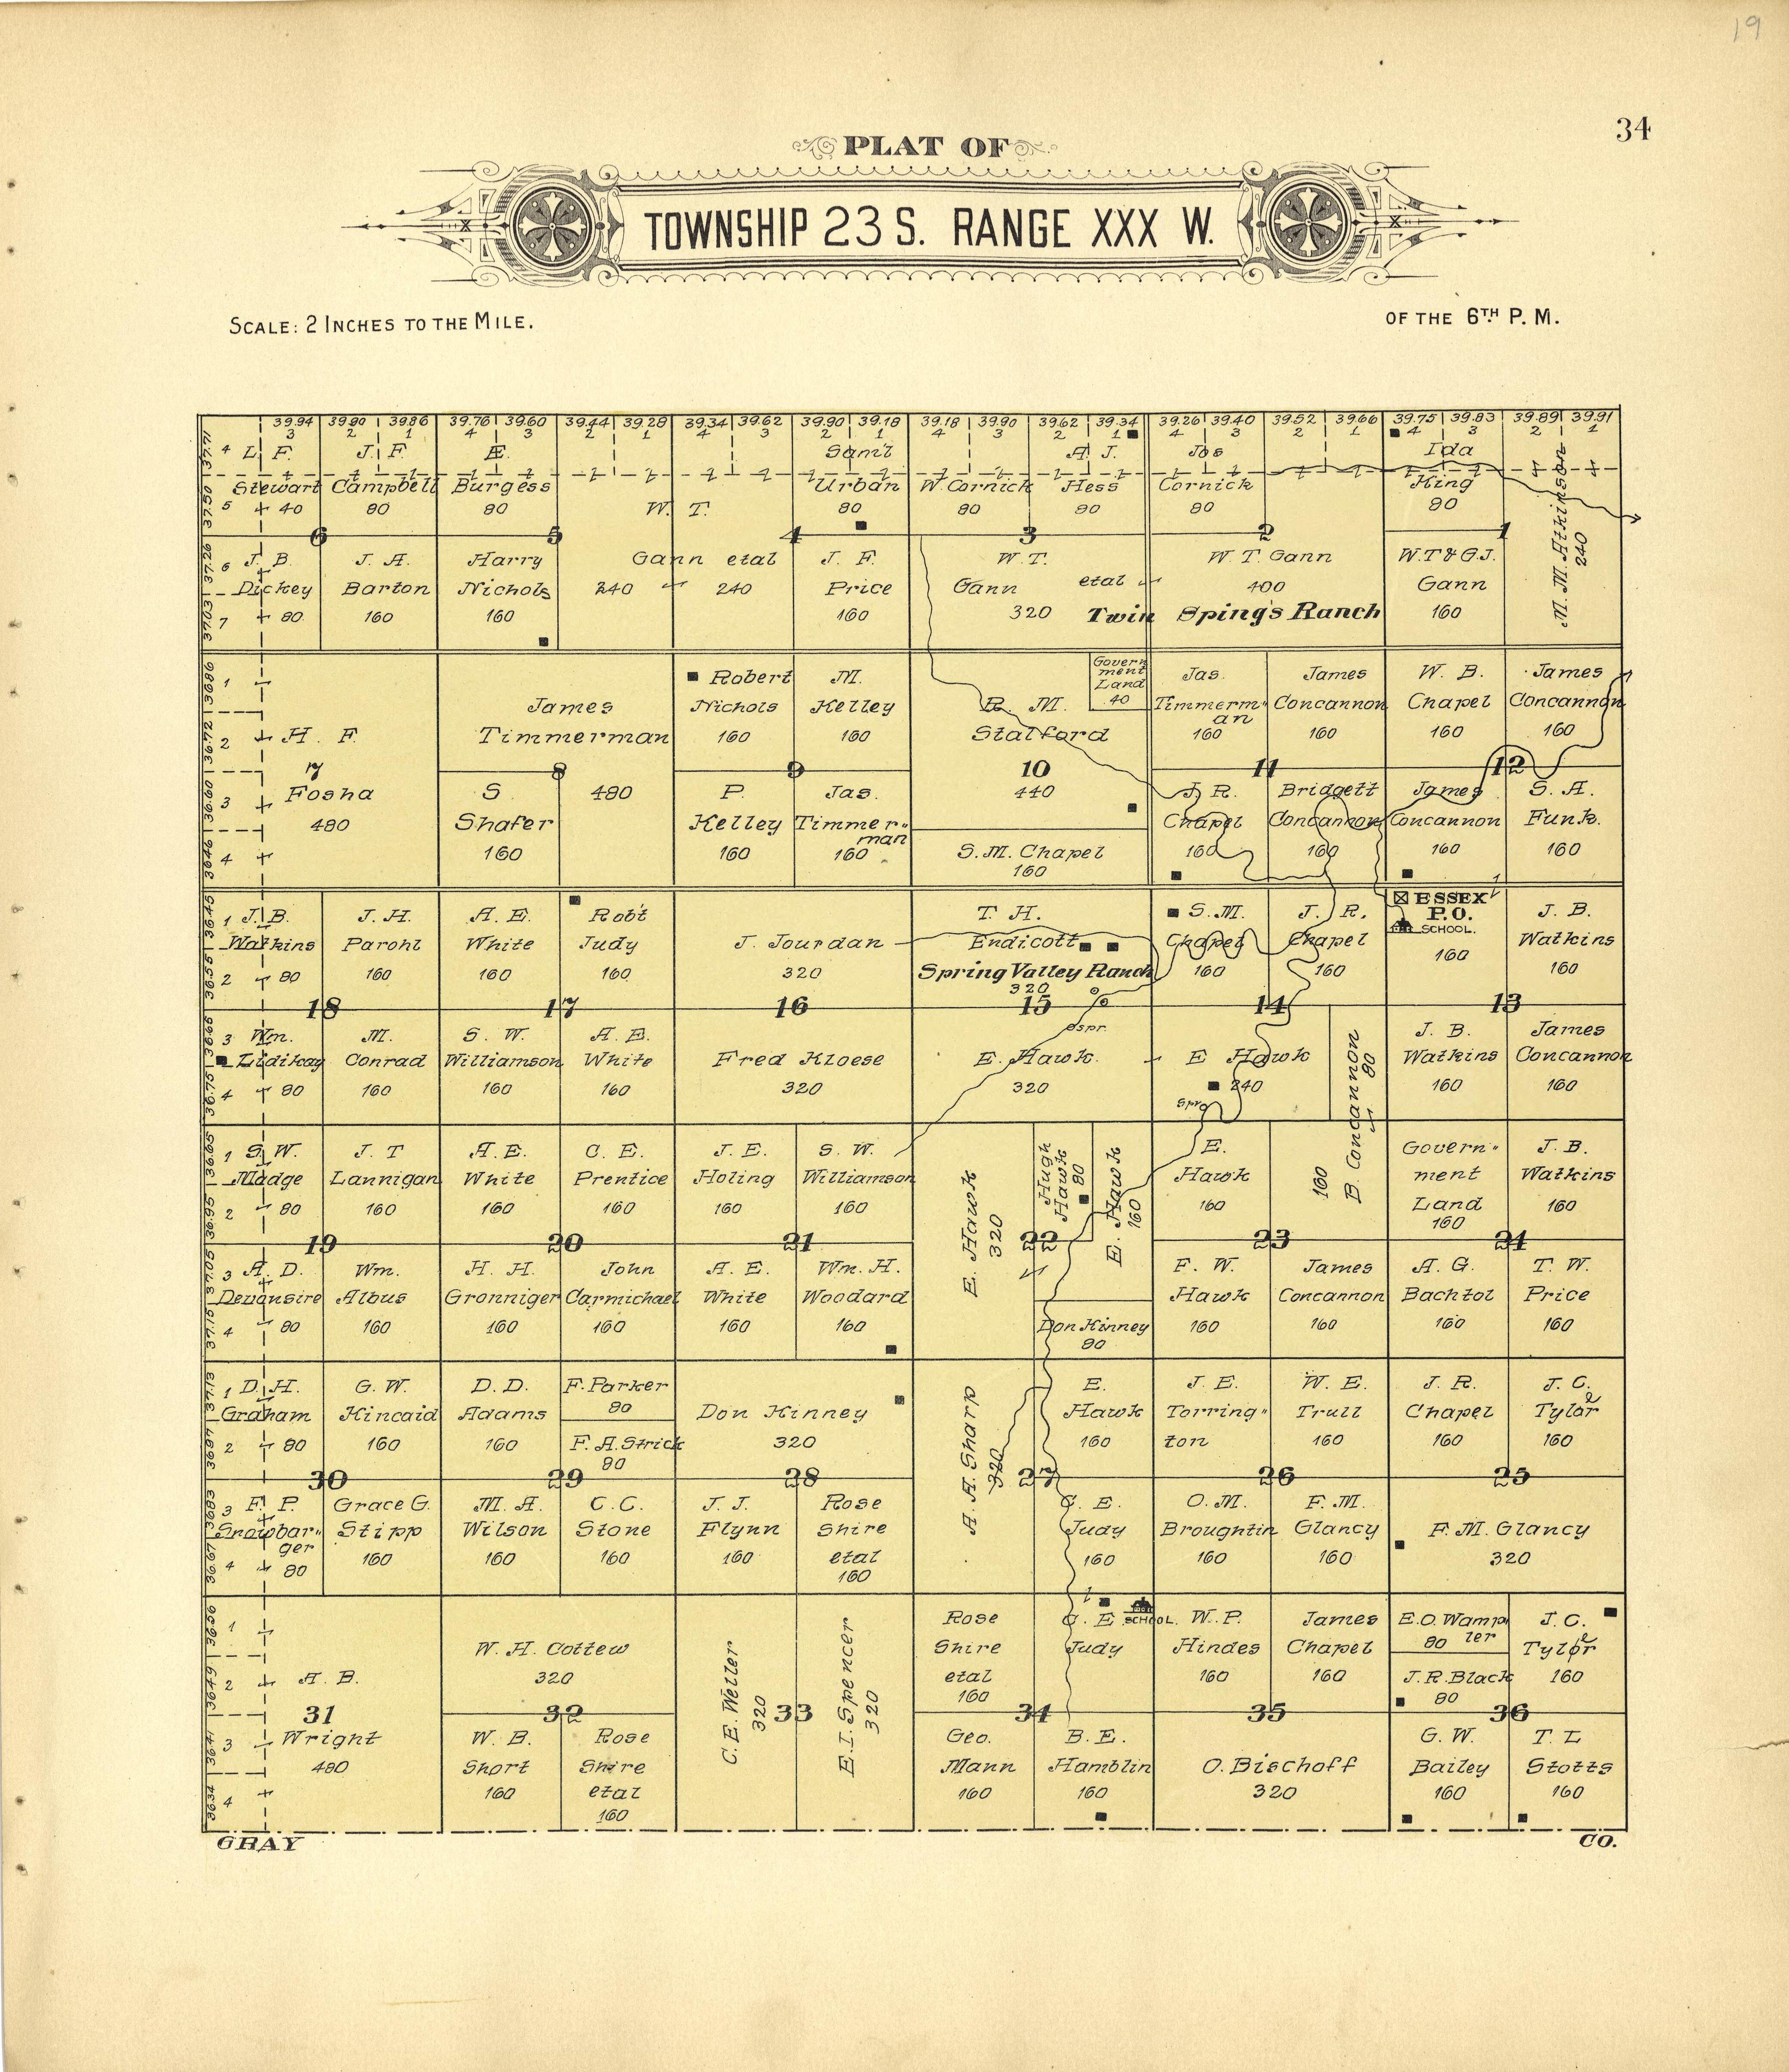 19
34
PLAT OF
TOWNSHIP 23 S. RANGE XXX W.
SCALE: 2 INCHES TO THE MILE.
OF THE 6TH P. M.
39.94 39.90 39.86 39.76 39.60 39.44 39.28 39.34 39.62 39.90 39.18 39.18 39.90 39.62 39.34 39.26 39.40 39.52 39.66 39.75 39.83 39.89 39.91
3 2 1 4 3 2 1 4 3 2 1 4 3 2 1 4 3 2 1 4 3 2 1
37.71 4 L. F.
Stewart
37.50 5 40
J. F.
Campbell
80
Æ.
Burgess
80
W. T.
Gann etal
240
240
Sam'l
Urban
80
W. Cornick
80
A. J.
Hess
80
Jos
Cornick
80
Ida
King
80
M. M. Atkinson
240
6 5 4 3 2 1
37.26 6 J. B.
Dickey
37.03 7 80
J. A.
Barton
160
Harry
Nichols
160
J. F.
Price
160
W. T.
Gann etal
320
W. T. Gann
400
Twin Spings Ranch
W.T & G.J.
Gann
160
36.86 1
36.72 2
36.60 3
36.46 4
H. F.
7
Fosha
480
James
Timmerman
8
480
S.
Shafer
160
Robert
Nichols
160
M.
Kelley
160
9
P.
Kelley
160
Jas.
Timmer"
man
160
R. M.
Stalford
10
440
Govern
ment
Land
40
S. M. Chapel
160
Jas.
Timmerm"
an
160
James
Concannon
160
11
J. R.
Chapel
160
Bridgett
Concannon
160
W. B.
Chapel
160
James
Concannon
160
12
James
Concannon
160
S. A.
Funk.
160
36.45 1 J. B.
Watkins
36.55 2 80
J. H.
Parohl
160
A. E.
White
160
Rob't
Judy
160
J. Jourdan
320
T. H.
Endicott
Spring Valley Ranch
320
S. M.
Chapel
160
J. R.
Chapel
160
ESSEX
P.O.
SCHOOL.
160
J. B.
Watkins
160
18 17 16 15 14 13
36.65 3 Wm.
Lidikay
36.75 4 80
M.
Conrad
160
S. W.
Williamson
160
A. E.
White
160
Fred Kloese
320
Spr.
E. Hawk.
320
E Hawk
240
Sprg
B. Concannon
80
160
J. B.
Watkins
160
James
Concannon
160
36.85 1 S. W.
Madge
36.95 2 80
J. T
Lannigan
160
A. E.
White
160
C. E.
Prentice
160
J. E.
Holing
160
S. W.
Williamson
160
E. Hawk
320
Hugh
Hawk
80
E. Hawk
160
E.
Hawk
160
Govern"
ment
Land
160
J. B.
Watkins
160
19 20 21 22 23 24
37.05 3 A. D.
Devonsire
37.15 4 80
Wm.
Albus
160
H. H.
Gronniger
160
John
Carmichael
160
A. E.
White
160
Wm. H.
Woodard
160
Don Kinney
80
F. W.
Hawk
160
James
Concannon
160
A. G.
Bachtol
160
T. W.
Price
160
37.13 1 D. H.
Graham
36.97 2 80
G. W.
Kincaid
160
D. D.
Adams
160
F. Parker
80
F. A. Strick
80
Don Kinney
320
A. A. Sharp
320
E.
Hawk
160
J. E.
Torring"
ton
W. E.
Trull
160
J. R.
Chapel
160
J. C.
Tylor
160
30 29 28 27 26 25
36.83 3 F. P.
Snowbar"
ger
36.67 4 80
Grace G.
Stipp
160
M. A.
Wilson
160
C. C.
Stone
160
J. J.
Flynn
160
Rose
Shire
etal
160
C. E.
Judy
160
O. M.
Broughtin
160
F. M.
Glancy
160
F. M. Glancy
320
36.56 1
36.49 2
36.41 3
36.34 4
A. B.
31
Wright
480
W. H. Cottew
320
32
W. B.
Short
160
Rose
Shire
etal
160
C. E. Weller
320
33
E. I. Spencer
320
Rose
Shire
etal
160
C. E
Judy
SCHOOL.
34
Geo.
Mann
160
B. E.
Hamblin
160
W. P.
Hindes
160
James
Chapel
160
35
O. Bischoff
320
E. O. Wamp
ler
80
J. R. Black
80
J. C.
Tylor
160
36
G. W.
Bailey
160
T. L
Stotts
160
GRAY CO.